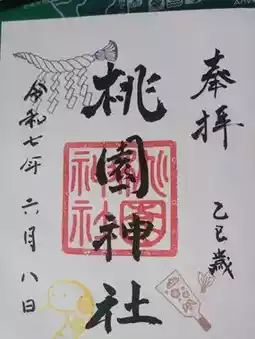 奉拝
乙巳歳
桃園神社
令和七年 六月 八日